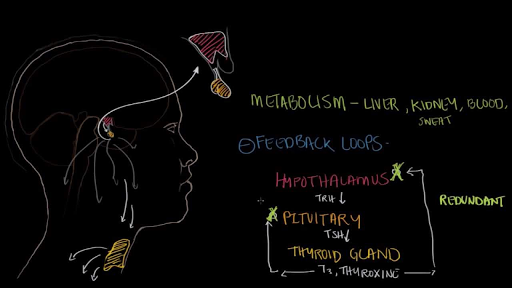 METABOLISM - LIVER, KIDNEY, BLOOD,
SWEAT
⊖FEEDBACK LOOPS -
HYPOTHALAMUS
TRH ↓
REDUNDANT
PITUITARY
TSH ↓
THYROID GLAND
T3, THYROXINE